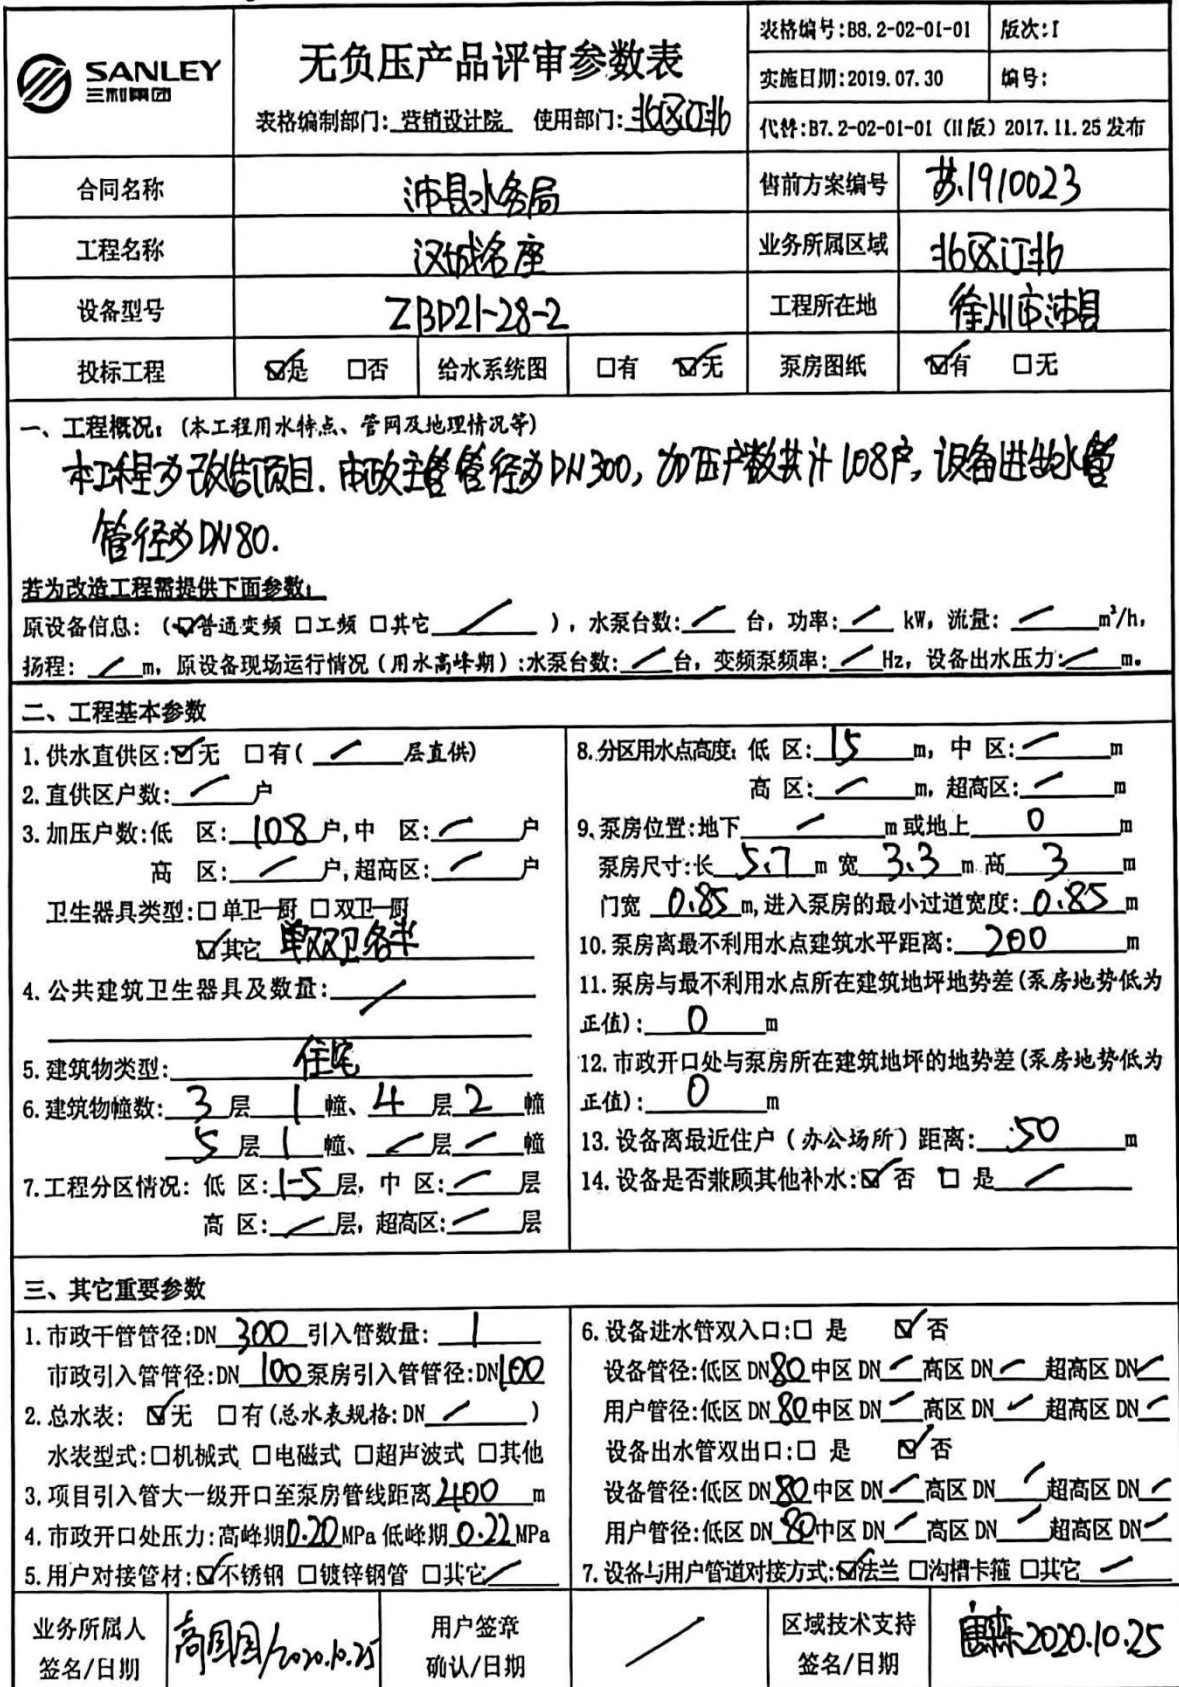 SANLEY
三利集团
无负压产品评审参数表
表格编制部门:营销设计院 使用部门:北区江北
表格编号:B8.2-02-01-01 版次:I
实施日期:2019.07.30 编号:
代替:B7.2-02-01-01 (II版) 2017.11.25 发布
合同名称 沛县水务局 售前方案编号 苏1910023
工程名称 汉城名座 业务所属区域 北区江北
设备型号 ZBD21-28-2 工程所在地 徐州市沛县
投标工程 ☑是 □否 给水系统图 □有 ☑无 泵房图纸 ☑有 □无
一、工程概况:(本工程用水特点、管网及地理情况等)
本工程为改造项目.市政主管管径为DN300,加压户数共计108户,设备进出水管
管径为DN80.
若为改造工程需提供下面参数:
原设备信息:(☑普通变频 □工频 □其它 / ),水泵台数: / 台,功率: / kW,流量: / m³/h,
扬程: / m,原设备现场运行情况(用水高峰期):水泵台数: / 台,变频泵频率: / Hz,设备出水压力: / m。
二、工程基本参数
1.供水直供区:☑无 □有( / 层直供)
2.直供区户数: / 户
3.加压户数:低 区:108户,中 区: / 户
高 区: / 户,超高区: / 户
卫生器具类型:□单卫一厨 □双卫一厨
☑其它 单双卫各半
4.公共建筑卫生器具及数量: /
5.建筑物类型: 住宅
6.建筑物幢数: 3 层 1 幢、 4 层 2 幢
5 层 1 幢、 / 层 / 幢
7.工程分区情况:低 区:1-5层,中 区: / 层
高 区: / 层,超高区: / 层
8.分区用水点高度:低 区: 15 m,中 区: / m
高 区: / m,超高区: / m
9、泵房位置:地下 / m或地上 0 m
泵房尺寸:长 5.7 m 宽 3.3 m 高 3 m
门宽 0.85 m,进入泵房的最小过道宽度:0.85 m
10.泵房离最不利用水点建筑水平距离: 200 m
11.泵房与最不利用水点所在建筑地坪地势差(泵房地势低为
正值): 0 m
12.市政开口处与泵房所在建筑地坪的地势差(泵房地势低为
正值): 0 m
13.设备离最近住户(办公场所)距离: 50 m
14.设备是否兼顾其他补水:☑否 □是 /
三、其它重要参数
1.市政干管管径:DN 300 引入管数量: 1
市政引入管管径:DN 100 泵房引入管管径:DN100
2.总水表: ☑无 □有(总水表规格:DN / )
水表型式:□机械式 □电磁式 □超声波式 □其他
3.项目引入管大一级开口至泵房管线距离 400 m
4.市政开口处压力:高峰期0.20MPa 低峰期0.22MPa
5.用户对接管材:☑不锈钢 □镀锌钢管 □其它 /
6.设备进水管双入口:□ 是 ☑ 否
设备管径:低区 DN 80 中区 DN / 高区 DN / 超高区 DN /
用户管径:低区 DN 80 中区 DN / 高区 DN / 超高区 DN /
设备出水管双出口:□ 是 ☑ 否
设备管径:低区 DN 80 中区 DN / 高区 DN / 超高区 DN /
用户管径:低区 DN 80 中区 DN / 高区 DN / 超高区 DN /
7.设备与用户管道对接方式:☑法兰 □沟槽卡箍 □其它 /
业务所属人 用户签章 区域技术支持
签名/日期 高国/2020.10.25 确认/日期 / 签名/日期 2020.10.25